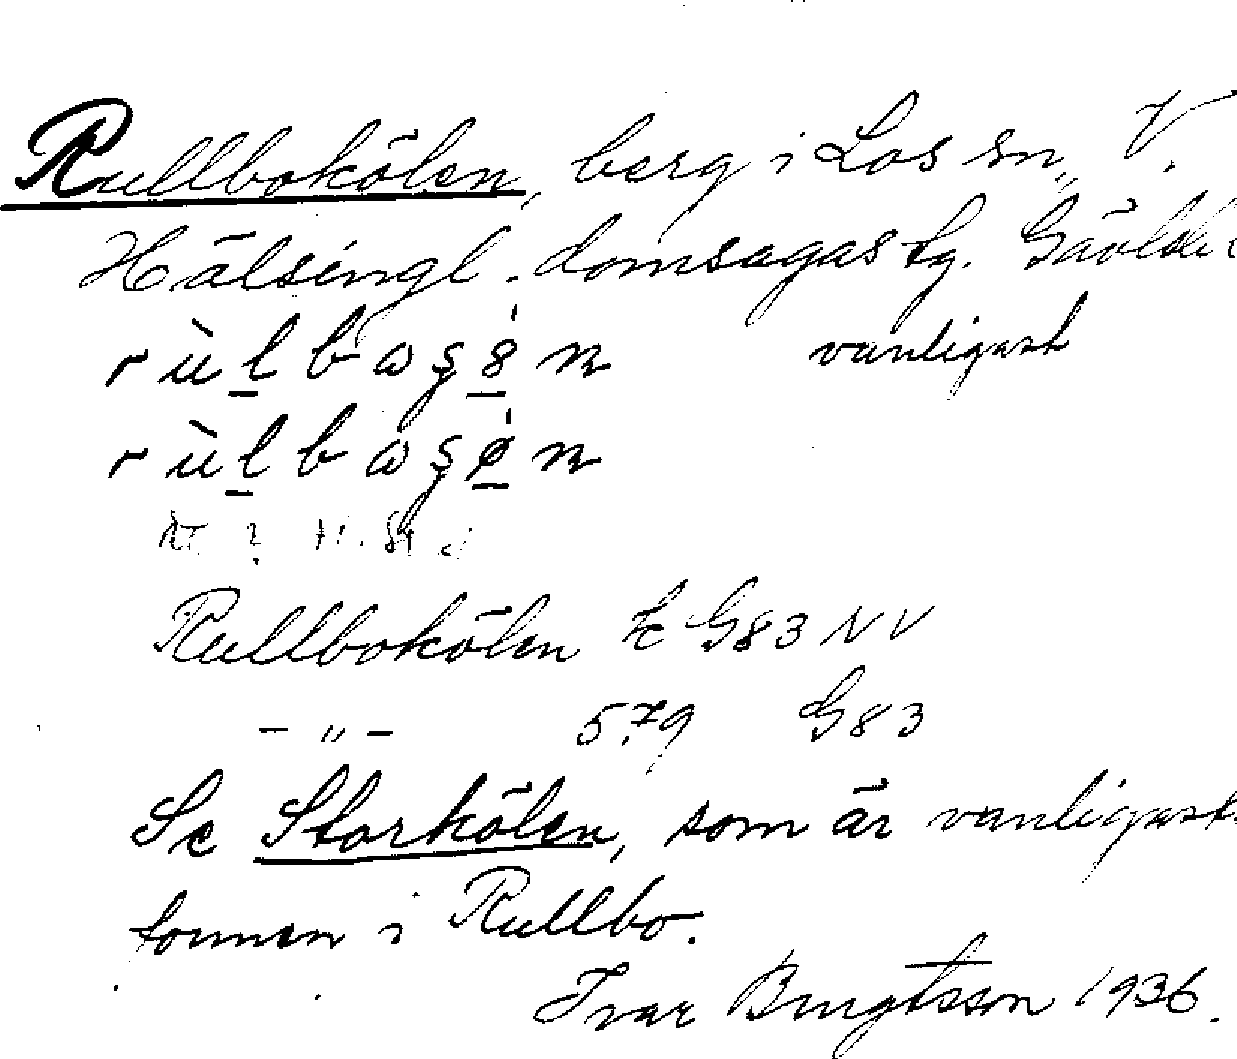 Rullbokölen, berg i Los sn, V.
Hälsingl. domsagas tg. Gävlebr
vanligast
Rullbokölen k G83 NV
— " — 579 G83
Se Storkölen, som är vanligast.
formen i Rullbo.
Ivar Bengtsson 1936.